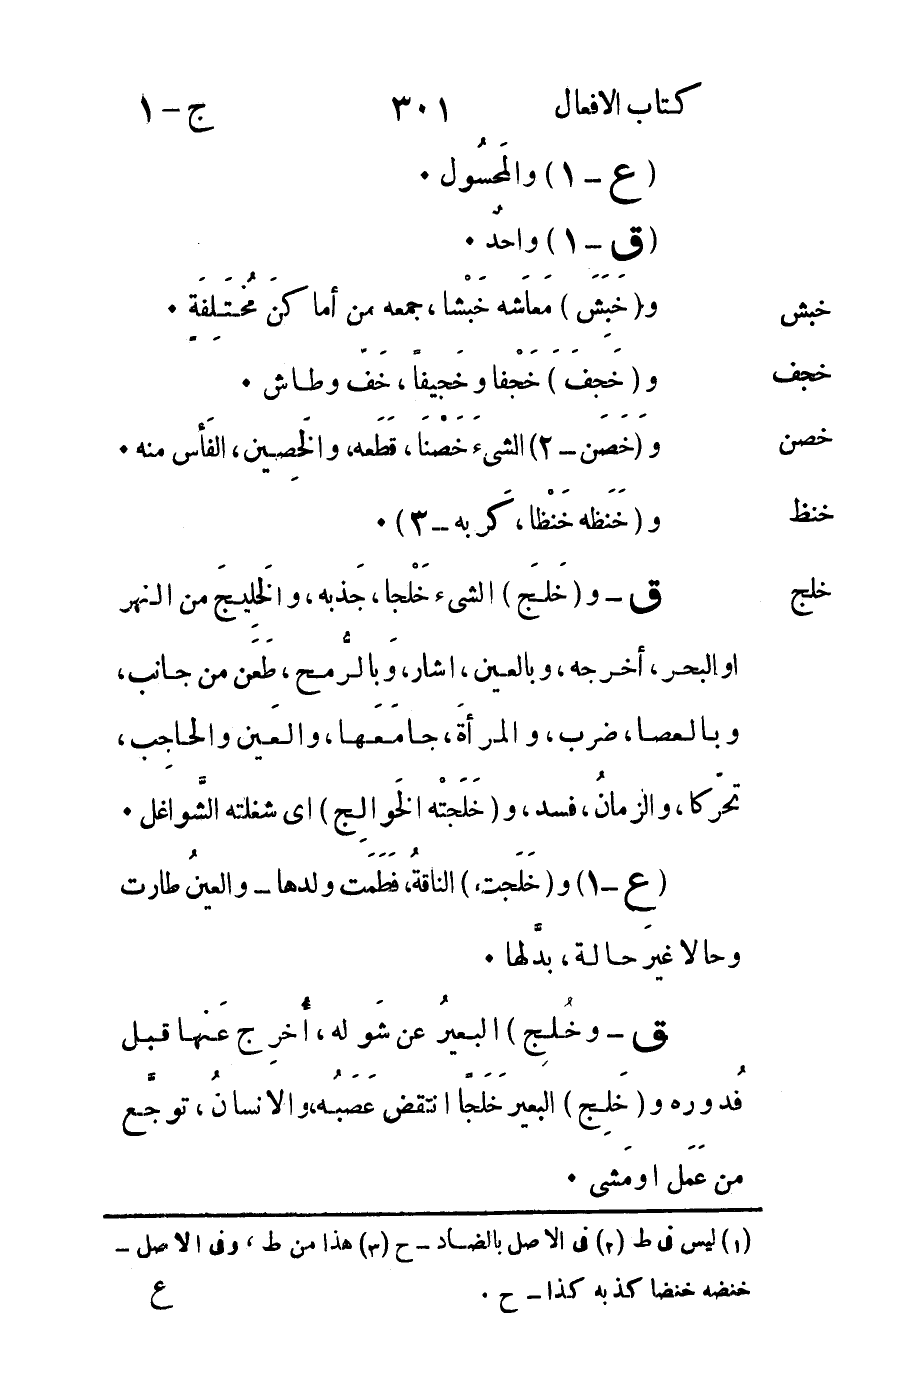 كتاب الافعال ٣٠١ ج – ١
(ع – ١) والمَحسُول ٠
(ق – ١) واحدٌ ٠
خبش و(خَبَشَ) مَعَاشَه خَبْشا، جمعه من أماكنَ مُختَلِفَةٍ ٠
خجف و (خَجَفَ) خَجْفا وخَجِيفاً، خَفّ وطاش ٠
خصن و (خَصَن – ٢) الشىءَ خَصْنَا، قَطَعَه، والخَصِين، الفَأس منه ٠
خنظ و (خَنَظه خَنْظا، كَربه – ٣) ٠
خلج ق – و (خَلَجَ) الشىءَ خَلْجا، جَذبه، والخَليجَ من النهر
اوالبحر، أخرجه، وبالعين، اشار، وَبالرُّمح، طَعَن من جانب،
وبالعصا، ضرب، والمرأةَ، جامَعَها، والعَين والحاجِب،
تحّركا، والزمانُ، فسد، و (خَلَجَتْه الخَوالِج) اى شغلته الشَّواغل ٠
(ع – ١) و (خَلَجت،) الناقةُ، فَطَمَت ولدها – والعينُ طارت
وحالا غيرَ حالة، بدَّلها ٠
ق – وخُلِج) البعيرُ عن شَوله، أُخرِج عَنها قبل
فُدوره و (خَلِج) البعيرُ خَلَجًّا انتقضَ عَصَبُه، والانسانُ، توجَّع
من عَمَل اومَشى ٠
(١) ليس فى ط (٢) فى الاصل بالضاد – ح (٣) هذا من ط، وفى الاصل –
خنضه خنضا كذبه كذا – ح ٠ ع